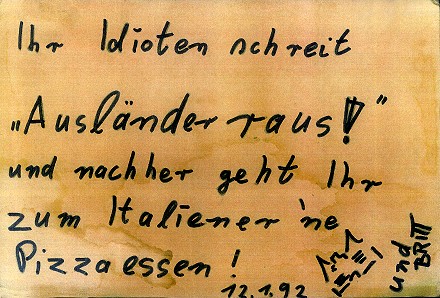 Ihr Idioten schreit
„Ausländer raus!"
und nachher geht Ihr
zum Italiener 'ne
Pizza essen!
12.1.92
und
BRITT